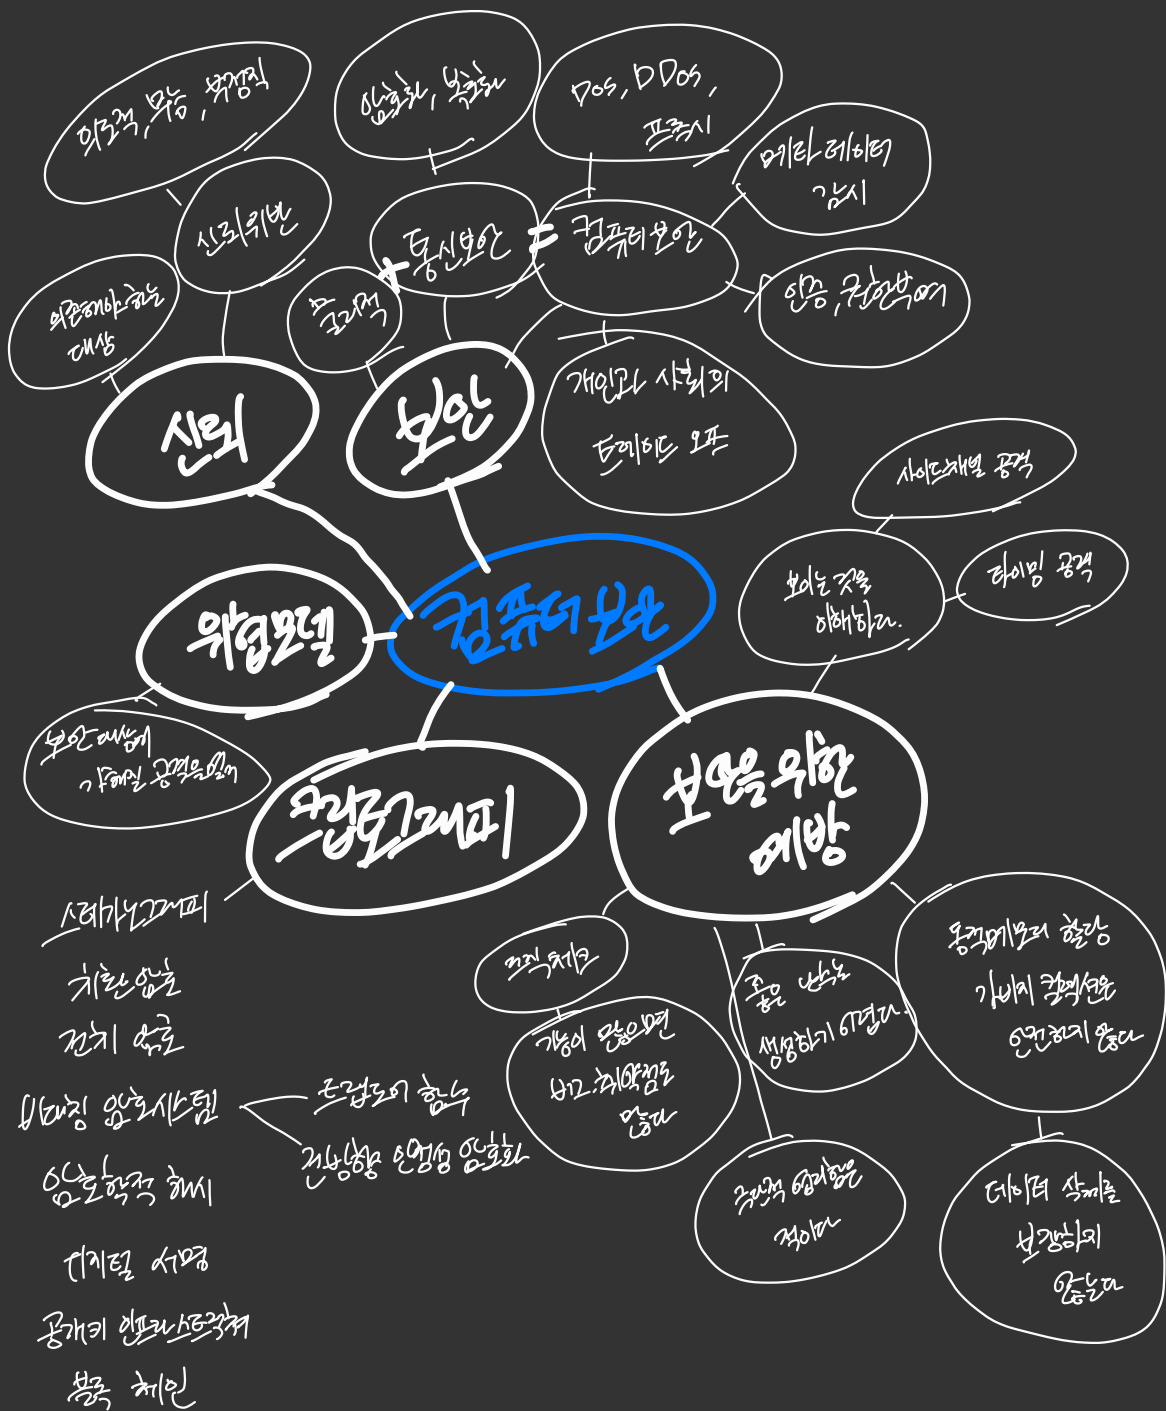 의도적, 무능, 부정직
암호화, 복호화
Dos, DDos,
프록시
메타 데이터
감시
신뢰위반
통신보안
=
컴퓨터 보안
+
물리적
인증, 권한부여
의존해야 하는
대상
신뢰
보안
개인과 사회의
트레이드 오프
사이드채널 공격
보이는 것을
이해하다.
타이밍 공격
컴퓨터 보안
위협모델
보안 대상에
가해질 공격을
크립토그래피
보안을 위한
예방
스테가노그래피
치환 암호
전치 암호
비대칭 암호시스템
트랩도어 함수
전방향 안정성 암호화
암호학적 해시
디지털 서명
공개키 인프라스트럭쳐
블록 체인
로직체크
기능이 많으면
버그, 취약점도
많다
좋은 난수는
생성하기 어렵다.
동적메모리 할당
가비지 컬렉션은
안전하지 않다
극단적 영리함은
적이다
데이터 삭제를
보장하지
않는다